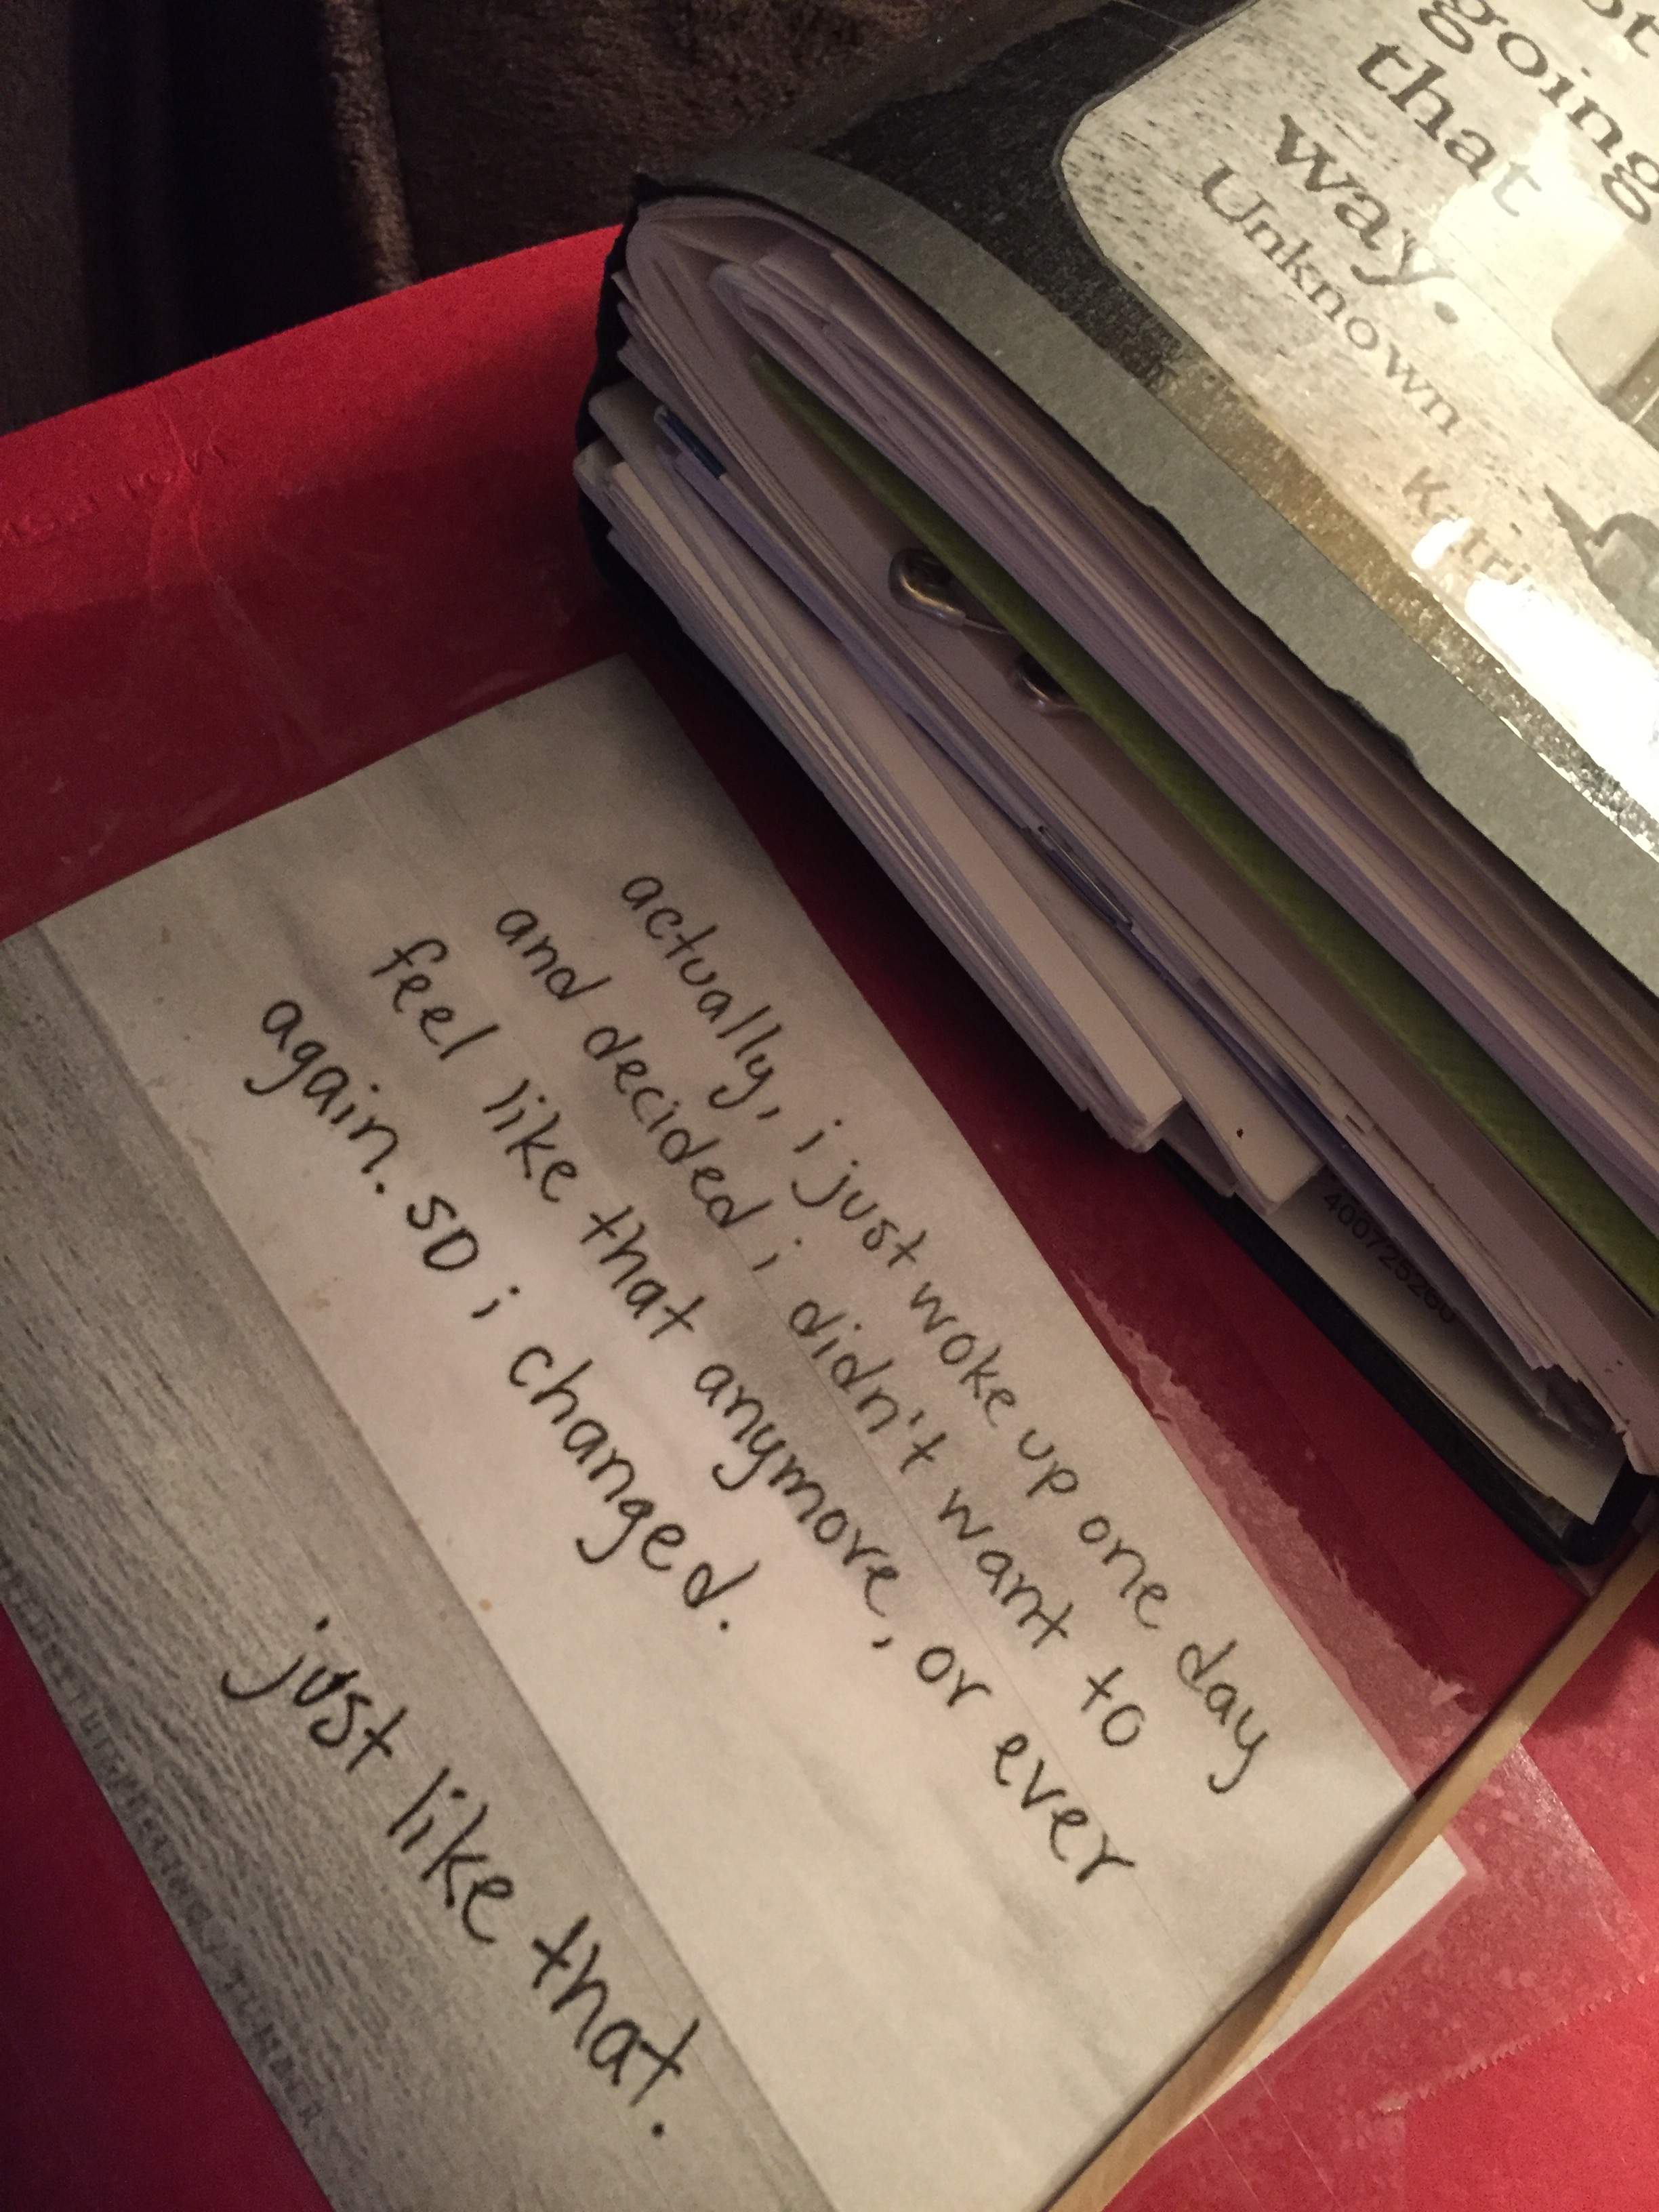 going
that
way.
Unknown
actually, i just woke up one day
and decided i didn't want to
feel like that anymore, or ever
again. so i changed.
just like that.